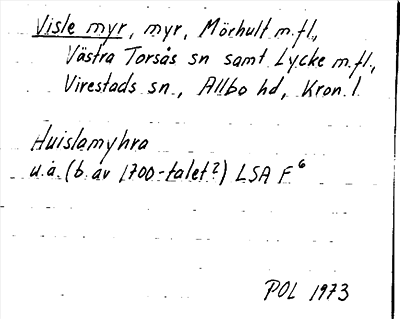 Visle myr, myr, Mörhult m.fl.,
Västra Torsås sn samt Lycke m.fl.,
Virestads sn., Allbo hd, Kron. l.
Huislamyhra
u.å. (b. av 1700-talet?) LSA F⁶
POL 1973